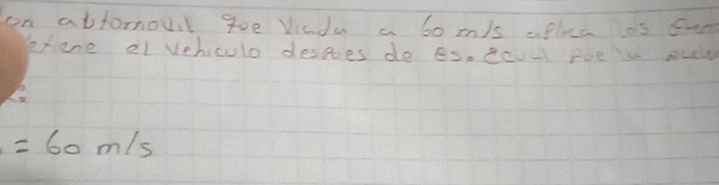 on automovil que viaja a 60 m/s aplica los
etiene el vehiculo despues de es. cual fue la
= 60 m/s